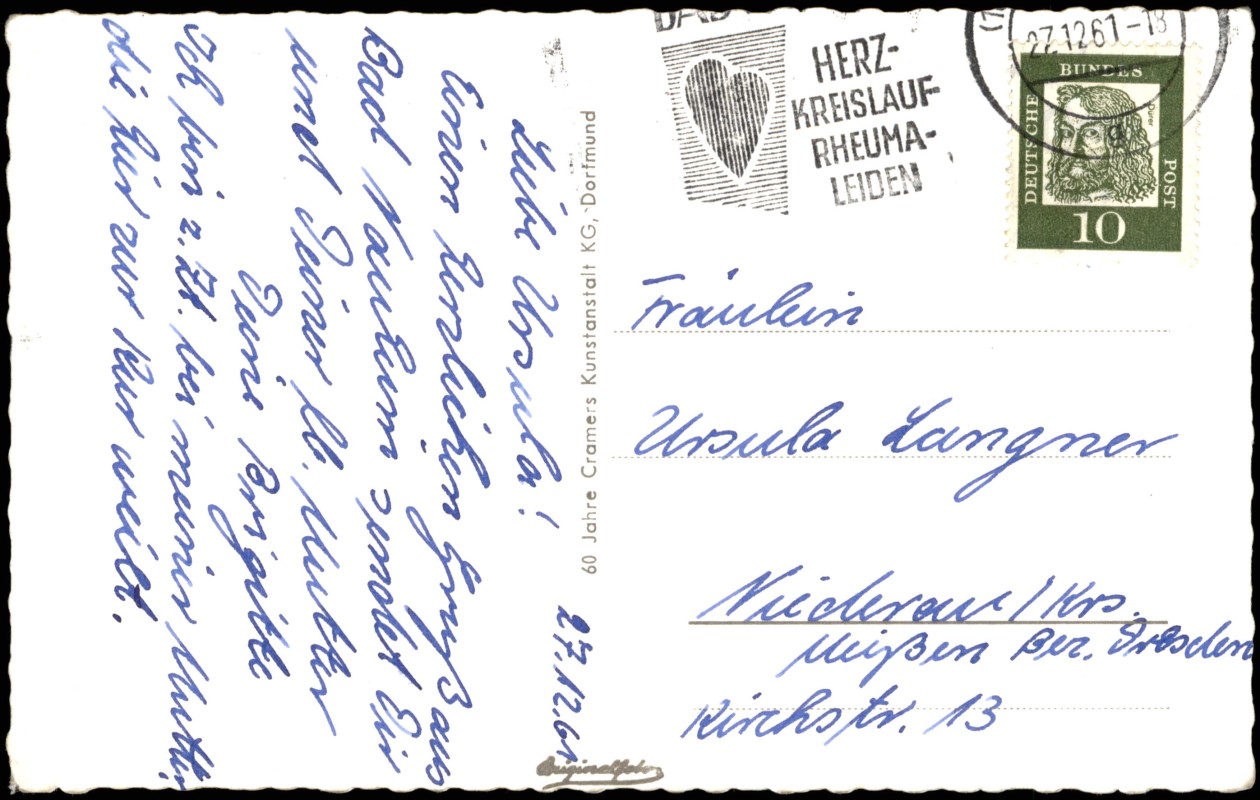 27.12.61
Liebe Ursula!
Einen herzlichen Gruß aus
Bad Nauheim sendet Dir
und Deiner lb. Mutter
Deine Brigitte
Ich bin z. Zt. bei meiner Mutter,
die hier zur Kur weilt.
60 Jahre Cramers Kunstanstalt KG, Dortmund
Originalfoto
BAD
HERZ-
KREISLAUF-
RHEUMA-
LEIDEN
27.12.61-18
a
DEUTSCHE
BUNDES
POST
Dürer
10
Fräulein
Ursula Langner
Niederau/Krs.
Meißen Bez. Dresden
Kirchstr. 13